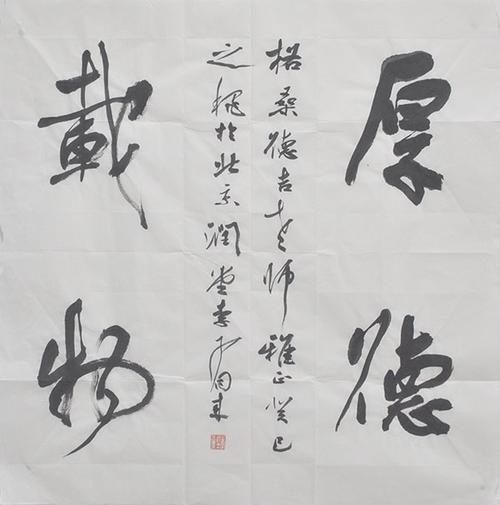 厚德
格桑德吉老师雅正癸巳
之秋于北京润堂李
载物